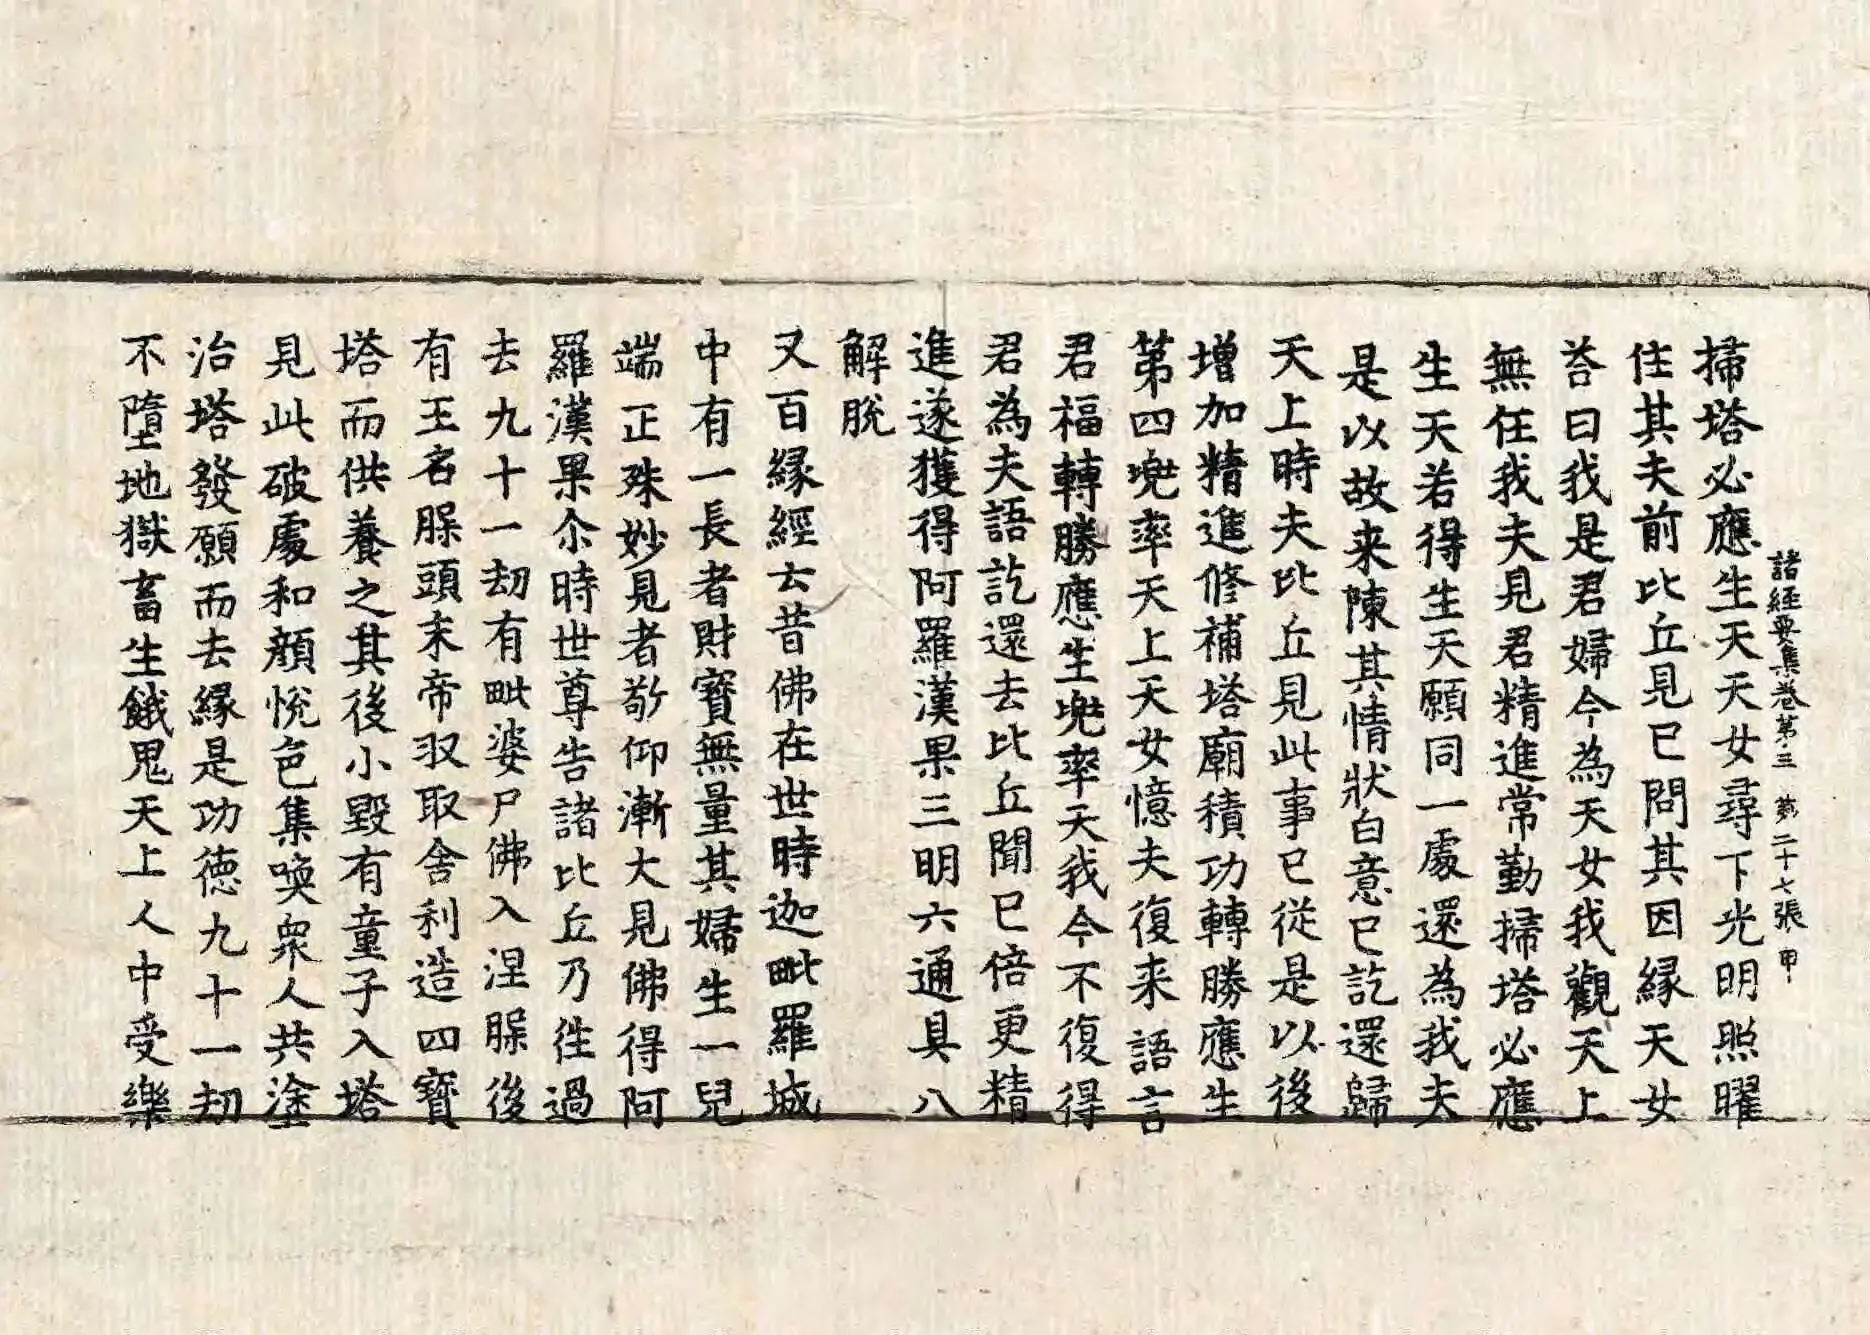 諸經要集卷第三　第二十七張　甲
掃塔必應生天天女尋下光明照曜
住其夫前比丘見已問其因縁天女
荅曰我是君婦今為天女我觀天上
無任我夫見君精進常勤掃塔必應
生天若得生天願同一處還為我夫
是以故来陳其情狀白意已訖還歸
天上時夫比丘見此事已從是以後
增加精進修補塔廟積功轉勝應生
第四兜率天上天女憶夫復来語言
君福轉勝應生兜率天我今不復得
君為夫語訖還去比丘聞已倍更精
進遂獲得阿羅漢果三明六通具八
解脫
又百縁經云昔佛在世時迦毗羅城
中有一長者財寶無量其婦生一兒
端正殊妙見者敬仰漸大見佛得阿
羅漢果尒時世尊告諸比丘乃徃過
去九十一劫有毗婆尸佛入涅槃後
有王名槃頭末帝収取舍利造四寶
塔而供養之其後小毀有童子入塔
見此破處和顔悅色集喚衆人共塗
治塔發願而去縁是功德九十一劫
不墮地獄畜生餓鬼天上人中受樂